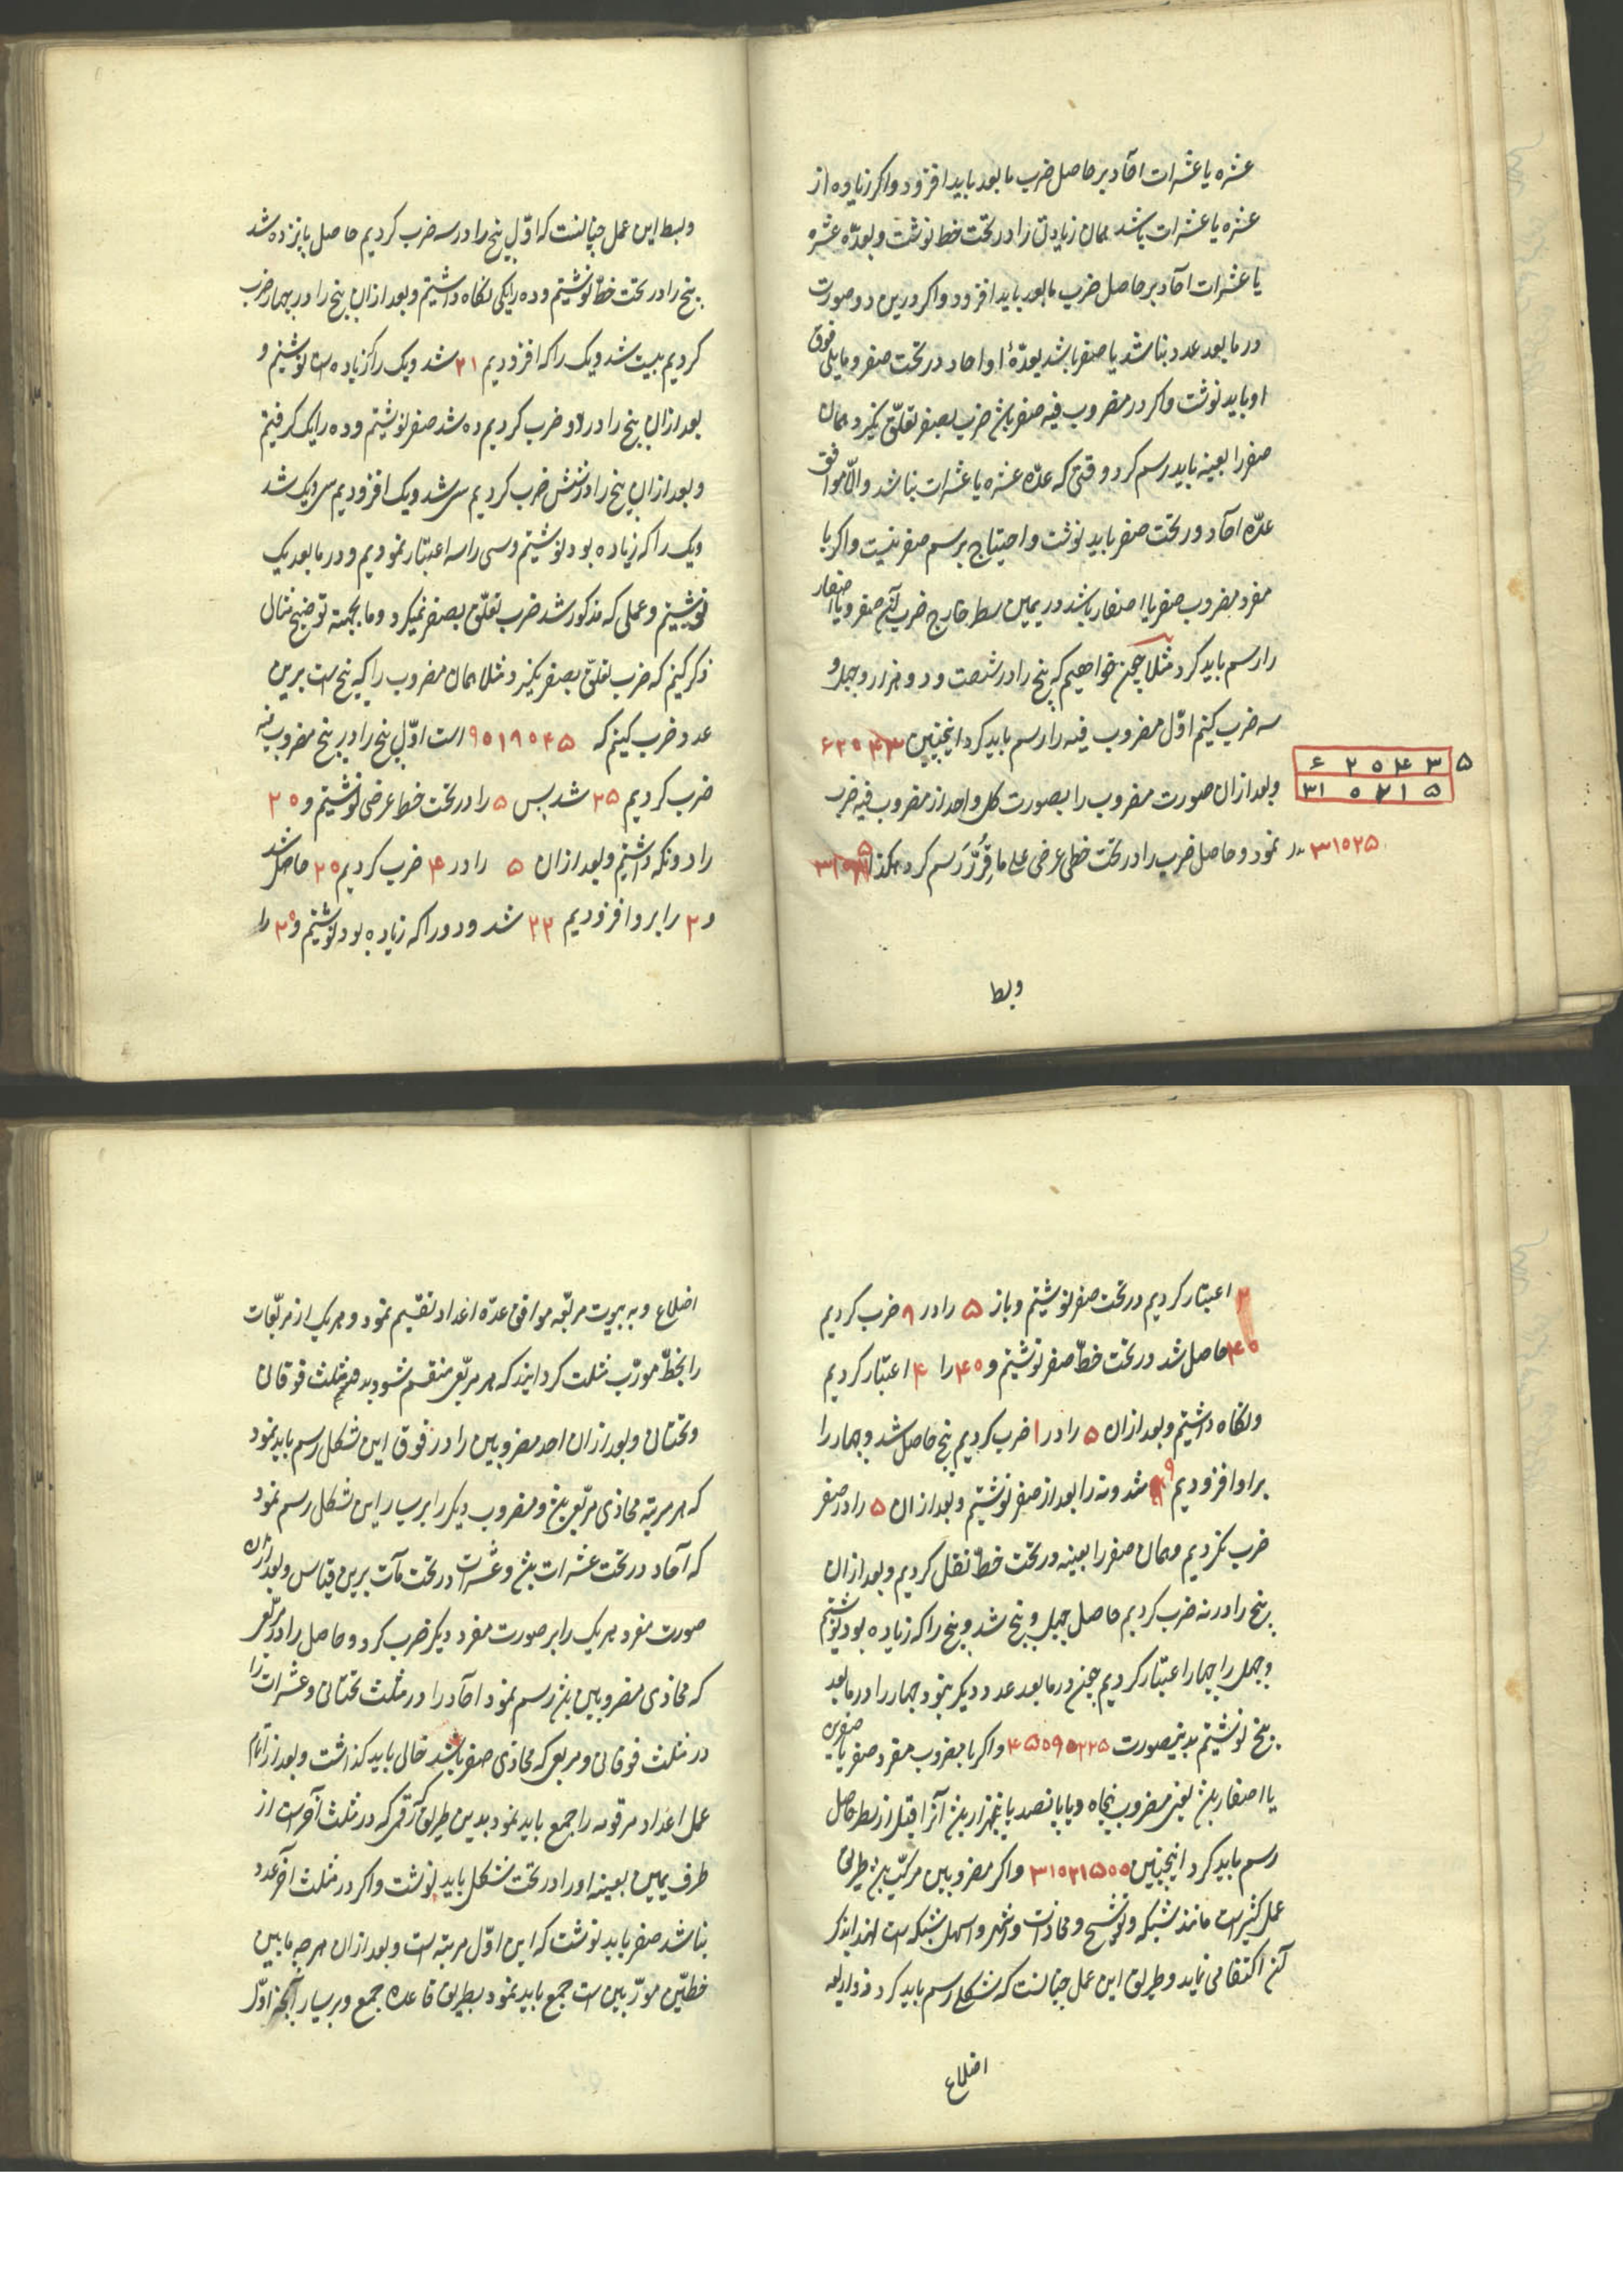 عشره یا عشرات آحاد بر حاصل ضرب ما بعد باید افزود و اکر زیاده از
عشره یا عشرات باشد همان زیادتی را در تحت خط نوشت و بعدّه عشره
یا عشرات آحاد بر حاصل ضرب ما بعد باید افزود و اکر درین دو صورت
در ما بعد عدد نباشد یا صفر باشد بعدّهٔ او احاد در تحت صفر و مایلی فوق
او باید نوشت و اکر در مضروب فیه صفر باشد ضرب بصفر تعلّق نکیرد همان
صفر را بعینه باید رسم کرد وقتی که عدّه عشره یا عشرات نباشد والّا موافق
عدّه آحاد در تحت صفر باید نوشت و احتیاج برسم صفر نیست و اکر با
مفرد مضروب صفر یا اصفار باشد در یمین سطر خارج ضرب آن صفر و یا اصفار
را رسم باید کرد مثلا چون خواهیم که پنج را در شصت و دو هزار و چهل و
سه ضرب کنیم اوّل مضروب فیه را رسم باید کرد اینچنین ۶۲۰۴۳
۵
۶ ۲ ۰ ۴ ۳
۳۱ ۰ ۲ ۱ ۵
و بعد از ان صورت مضروب را بصورت کل واحد از مضروب فیه ضرب
نمود و حاصل ضرب را در تحت خطی عرضی علی ما قُرِّرَ رسم کرد هکذا
۳۱۰۲۵
وبط
وبسط این عمل چنانست که اوّل پنج را در سه ضرب کردیم حاصل پانزده شد
پنج را در تحت خط نوشتیم و ده را یکی نکاه داشتیم و بعد ازان پنج را در چهار ضرب
کردیم بیست شد و یک را که افزودیم ۲۱ شد و یک را که زیاده است نوشتیم و
بعد ازان پنج را در دو ضرب کردیم ده شد صفر نوشتیم و ده را یک کرفتیم
و بعد ازان پنج را در شش ضرب کردیم سی شد و یک افزودیم سی و یک شد
و یک را که زیاده بود نوشتیم و سی را سه اعتبار نمودیم و در ما بعد یک
نوشتیم و عملی که مذکور شد ضرب تعلّق بصفر نمیکرد و ما بجهته توضیح مثالی
ذکر کنیم که ضرب تعلّق بصفر نکیرد مثلا همان مضروب را که پنج است برین
عدد ضرب کنیم که ۹۰۱۹۰۴۵ است اوّل پنج را در پنج مضروب فیه
ضرب کردیم ۲۵ شد پس ۵ را در تحت خط عرضی نوشتیم و ۲۰
را دو نکه داشتیم و بعد ازان ۵ را در ۴ ضرب کردیم ۲۰ حاصل شد
و ۲ را برو افزودیم ۲۲ شد و دو را که زیاده بود نوشتیم و ۲۰ را
۲ اعتبار کردیم در تحت صفر نوشتیم و باز ۵ را در ۹ ضرب کردیم
۴۰ حاصل شد در تحت خطّ صفر نوشتیم و ۴۰ را ۴ اعتبار کردیم
و نکاه داشتیم و بعد ازان ۵ را در ۱ ضرب کردیم پنج حاصل شد و چهار را
بر او افزودیم ۹ شد و نه را بعد از صفر نوشتیم و بعد ازان ۵ را در صفر
ضرب نکردیم و همان صفر را بعینه در تحت خطّ نقل کردیم و بعد ازان
پنج را در نه ضرب کردیم حاصل چهل و پنج شد و پنج را که زیاده بود نوشتیم
و چهل را چهار اعتبار کردیم چون در ما بعد عدد دیکر نبود چهار را در ما بعد
پنج نوشتیم بدینصورت ۴۵۰۹۰۲۲۵ و اکر با مضروب مفرد صفر یا صفرین
یا اصفار باشد یعنی مضروب پنجاه و یا پانصد یا پنجهزار باشد آنرا قبل از سطر حاصل
رسم باید کرد اینچنین ۳۱۰۲۱۵۰۰ و اکر مضروبین مرکّب باشد طریق
عمل کثیر است مانند شبکه و توشیح و محاذات و اشهر و اسهل شبکه است لهذا بذکر
آن اکتفا می نماید و طریق این عمل چنانست که شکلی رسم باید کرد ذو اربعه
اضلاع
اضلاع و به بیوت مربّعه موافق عدّه اعداد تقسیم نمود و هر یک از مربّعات
را بخطّ مورّب مثلث کردانید که هر مربّعی منقسم شود بدو مثلث فوقانی
و تحتانی و بعد ازان احد مضروبین را در فوق این شکل رسم باید نمود
که هر مرتبه محاذی مربّعی باشد و مضروب دیکر را بر یسار این شکل رسم نمود
که آحاد در تحت عشرات باشد و عشرات در تحت مآت برین قیاس و بعد ازان
صورت مفرد هر یک را بر صورت مفرد دیکر ضرب کرد و حاصل را در مربّعی
که محاذی مضروبین باشد رسم نمود احاد را در مثلث تحتانی و عشرات را
در مثلث فوقانی و مربعی که محاذی صفر باشد خالی باید کذاشت و بعد از اتمام
عمل اعداد مرقومه را جمع باید نمود بدین طریق که رقمی که در مثلث آخر است از
طرف یمین بعینه او را در تحت شکل باید نوشت و اکر در مثلث آخر عدد
نباشد صفر باید نوشت که این اوّل مرتبه است و بعد ازان هر چه مابین
خطّین مورّبین است جمع باید نمود بطریق قاعده جمع و بر یسار آنچه اوّل